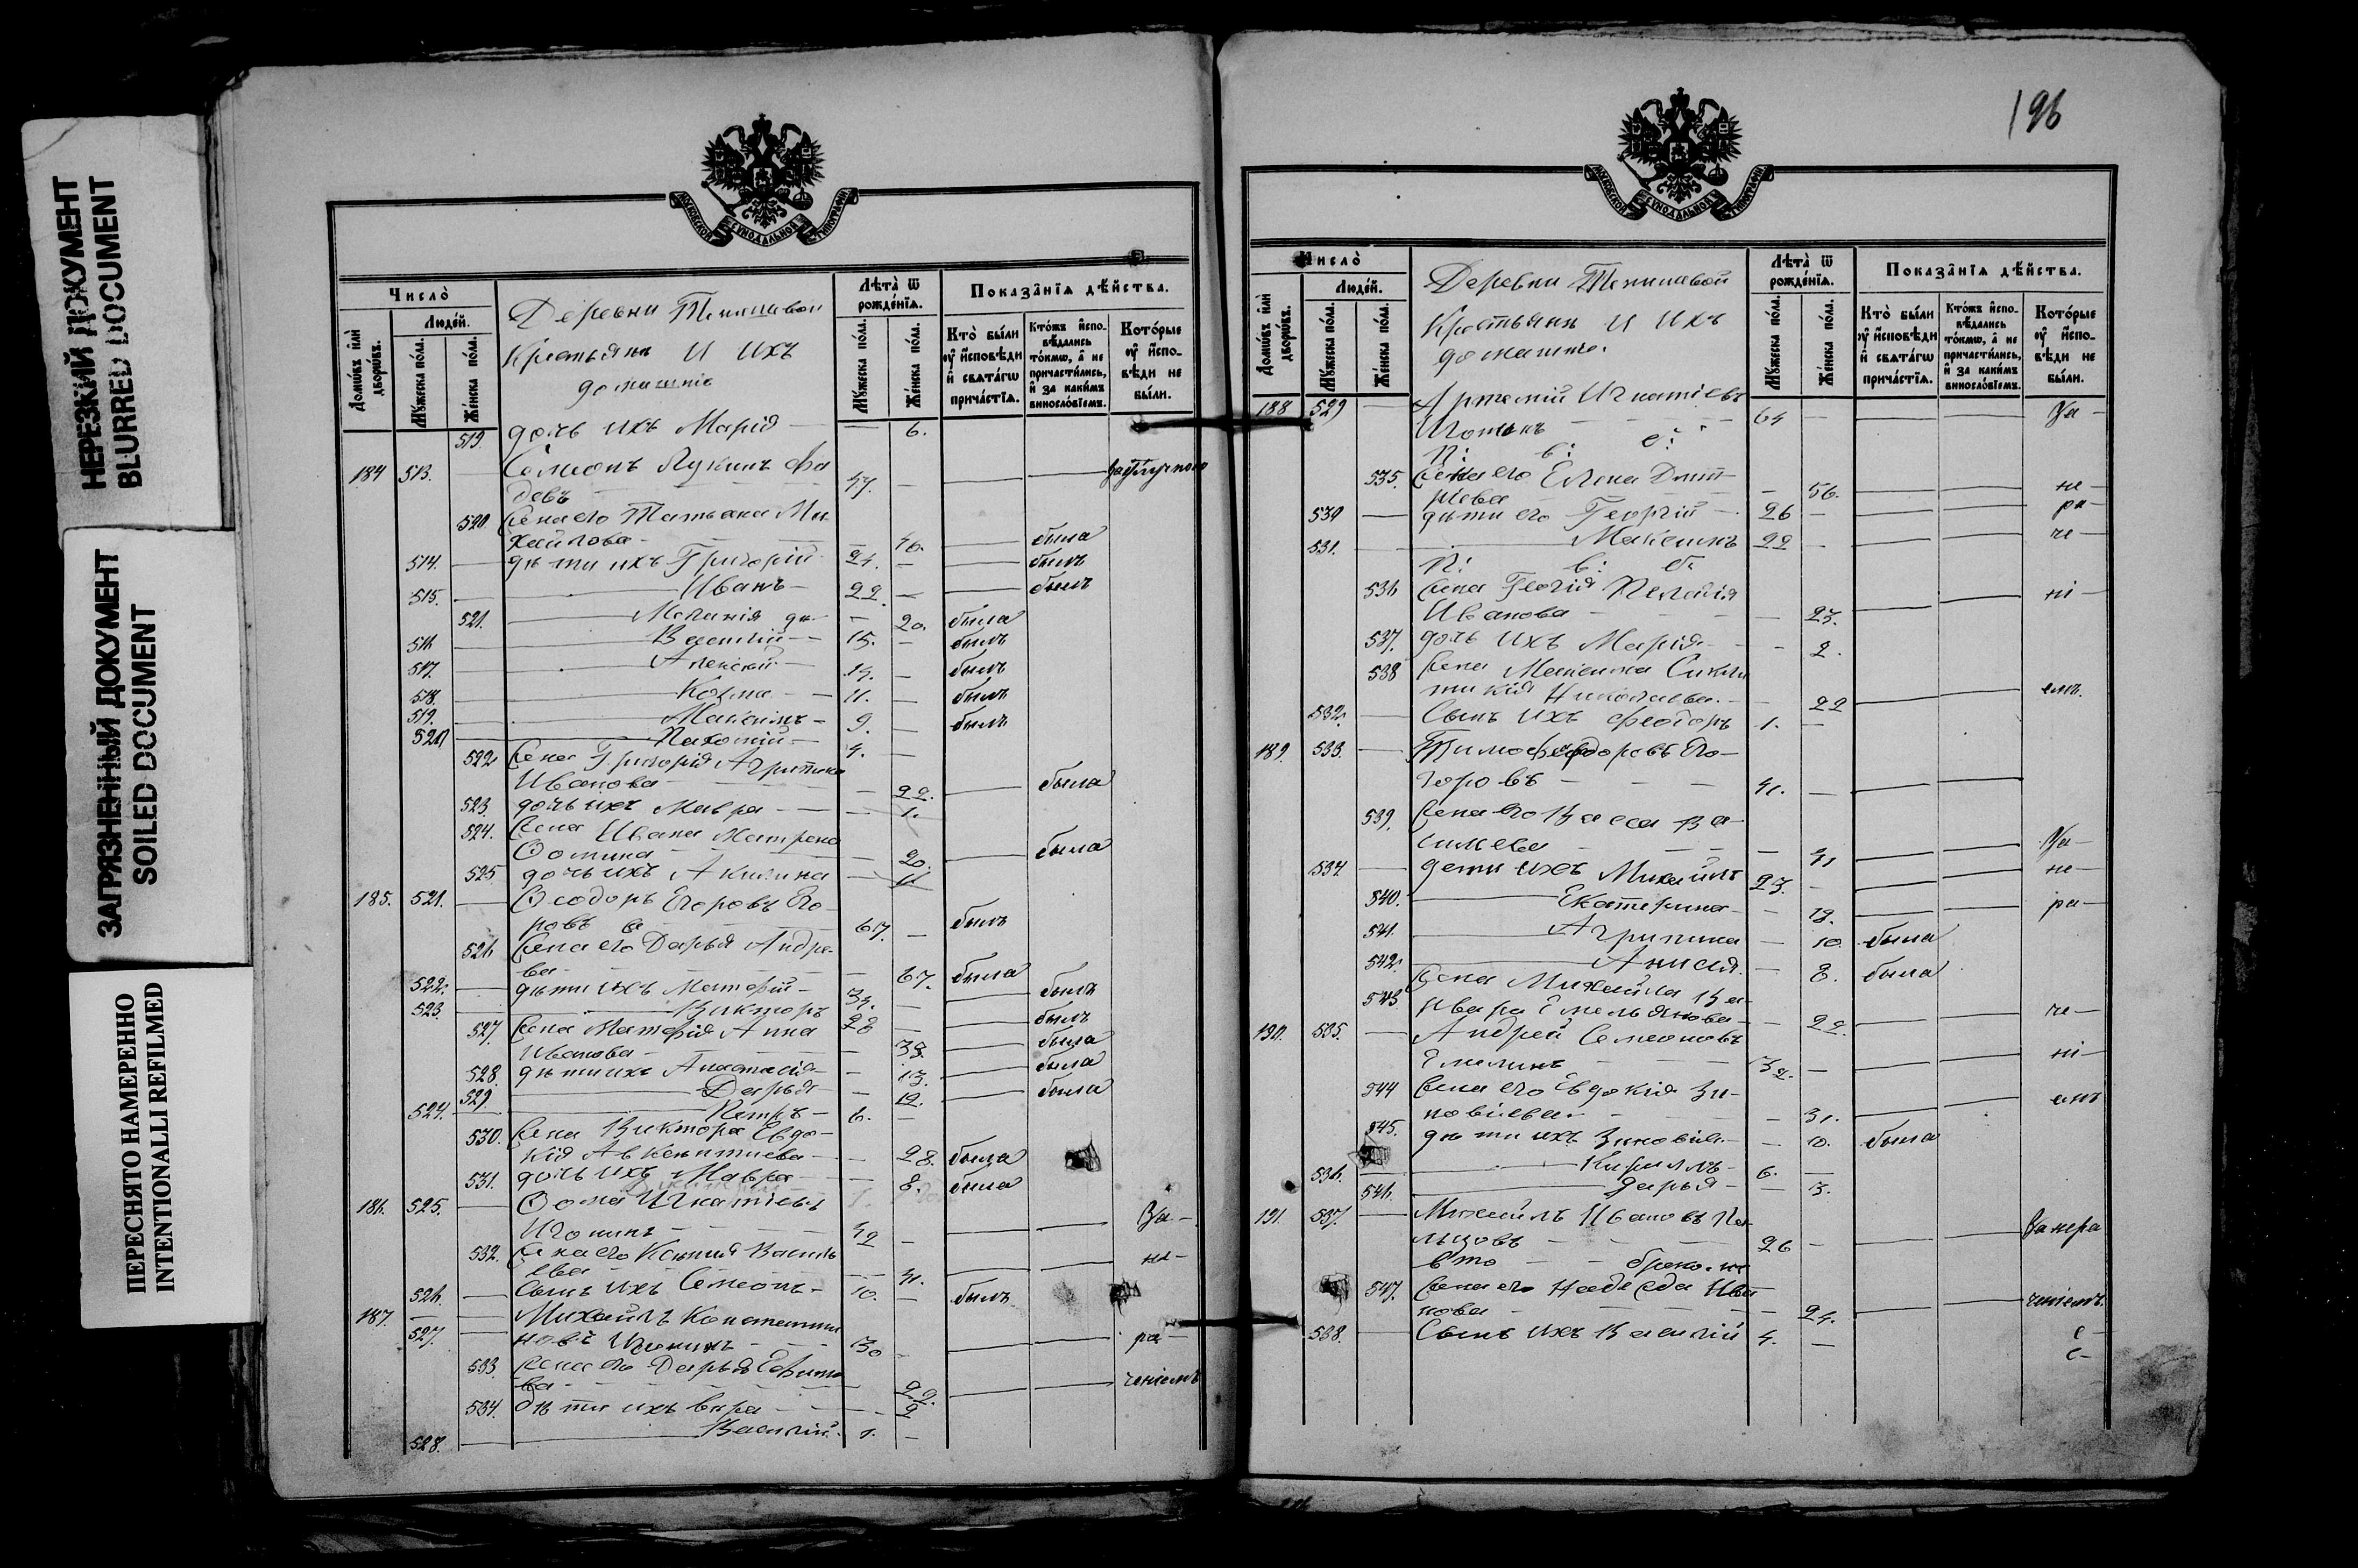 НЕРЕЗКИЙ ДОКУМЕНТ
BLURRED DOCUMENT
ЗАГРЯЗНЕННЫЙ ДОКУМЕНТ
SOILED DOCUMENT
ПЕРЕСНЯТО НАМЕРЕННО
INTENTIONALLI REFILMED
МОСКОВСКОЙ СѴНОДАЛЬНОЙ ТИПОГРАФІИ
Число̀
Домѡ́въ и҆лѝ дворѡ́въ.
Люде́й.
Мꙋ́жеска по́ла.
Же́нска по́ла.
Деревни
Крестьянъ и ихъ
домашніе
Лѣта̀ ѿ рожде́нїѧ.
Мꙋ́жеска по́ла.
Же́нска по́ла.
Показа̑нїѧ дѣ́йства.
Кто̀ бы́ли ᲂу҆ и҆́сповѣди и҆ свѧта́гѡ прича́стїѧ.
Кто́жъ и҆спо-вѣ́дались то́кмѡ, а҆ не причасти́лись, и҆ за каки́мъ винносло́вїемъ.
Кото́рые ᲂу҆ и҆́спо-вѣди не бы́ли.
519 дочь ихъ Марія 6.
184 513. Семіонъ Лукинъ
47.
520 Жена его Татьяна Ми
хайлова 46. была
514. дѣти ихъ Григорій 24. былъ
515. Иванъ 22. былъ
521. Меланія 20. была
516 Василій 15. былъ
517. Алексій 14. былъ
518. Козма 11. былъ
519. Максимъ 9. былъ
520 Пахомій 4.
522 Жена Григорія Агрипина
Иванова 22. была
523. дочь ихъ Мавра 1.
524. Жена Ивана Матрена
Ѳомина 20. была
525 дочь ихъ Акилина
185. 521. Ѳеодоръ Егоровъ Его
ровъ 67. былъ
526 Жена его Дарья Андре
ва 67. была
522. дѣти ихъ Матфій 34. былъ
523. Викторъ 28 былъ
527. Жена Матфія Анна
Иванова 33. была
528. дѣти ихъ Анастасія 13. была
529. Дарья 12. была
524. Петръ 6.
530. Жена Виктора Евдо
кія Авксентиева 28. была
531. дочь ихъ Мавра 8. была
186. 525. Ѳома Игнатіевъ
Игонинъ 42 За
532. Жена его Ксенія Василь
ева 41. не
526. Сынъ ихъ Семеонъ 10. былъ
187. 527. Михаилъ Константи
новъ Игонинъ 30 ра
533. Жена его Дарья Ефимо
ва 22. ченіемъ
534. дѣти ихъ Вѣра 2
528. Василій 1.
196
МОСКОВСКОЙ СѴНОДАЛЬНОЙ ТИПОГРАФІИ
Число̀
Домѡ́въ и҆лѝ дворѡ́въ.
Люде́й.
Мꙋ́жеска по́ла.
Же́нска по́ла.
Деревни
Крестьянъ и ихъ
домашніе
Лѣта̀ ѿ рожде́нїѧ.
Мꙋ́жеска по́ла.
Же́нска по́ла.
Показа̑нїѧ дѣ́йства.
Кто̀ бы́ли ᲂу҆ и҆́сповѣди и҆ свѧта́гѡ прича́стїѧ.
Кто́жъ и҆спо-вѣ́дались то́кмѡ, а҆ не причасти́лись, и҆ за каки́мъ винносло́вїемъ.
Кото́рые ᲂу҆ и҆́спо-вѣди не бы́ли.
188 529 Артемій Игнатіевъ
Игонинъ 64 За
535. Жена его Елена Дмит
ріева 56. не
530 дѣти его Георгій 26 ра
531. Максимъ 22 че
536 Жена Георгія Пелагія
Иванова 23. ні
537. дочь ихъ Марія 2.
538 Жена Максима Синкли
тикія Николаева 22 емъ
532. Сынъ ихъ Феодоръ 1.
189. 533. Тимофей Федоровъ Его
горовъ 41.
539. Жена его Васса Ва
сильева 41 За
534 дети ихъ Михаилъ 23. не
540. Екатерина 19. ра
541. Агрипина 10. была
542. Анисія 8. была
543 Жена Михаила Ва
рвара Емельянова 22. че
190. 535. Андрей Семеоновъ
Емелинъ 32. ні
544 Жена его Евдокія Зи
новіева 31. емъ
545. дѣти ихъ Зиновія 10. была
536. Кириллъ 6.
546. Дарья 3.
191. 537. Михаилъ Ивановъ
26 За нера
547. Жена его Надежда Ива
нова 24. ченіемъ
538. Сынъ ихъ Василій 4.